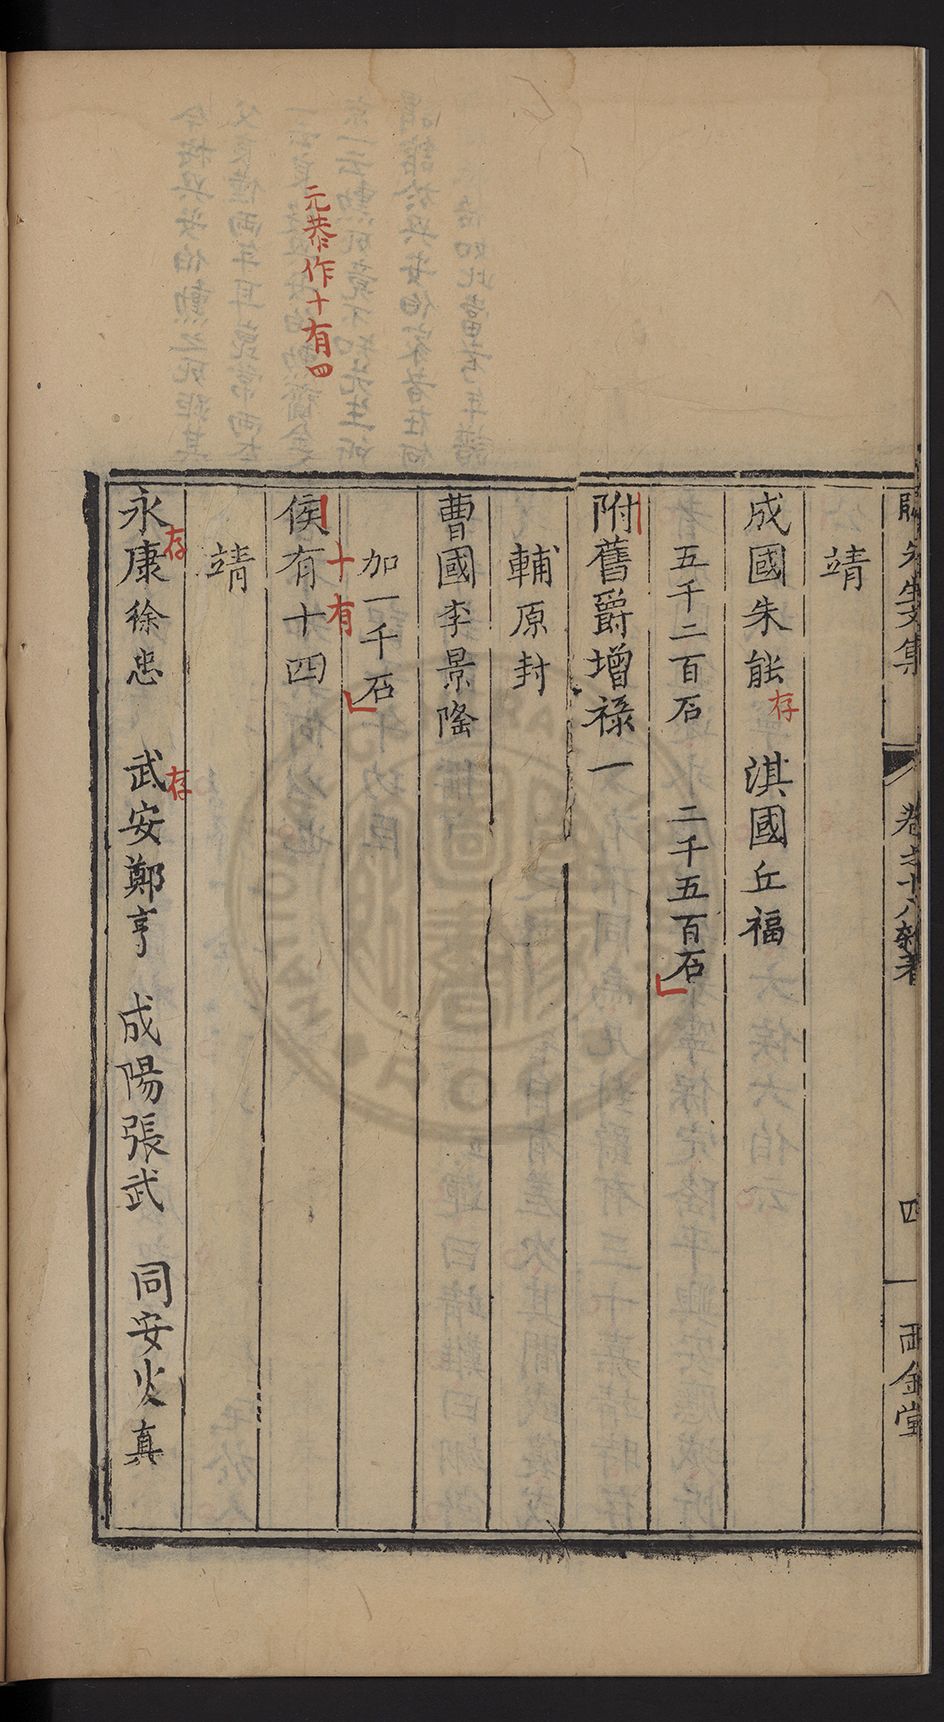 先生文集 卷之十八雜著 四 兩金堂
靖
成國朱能存 淇國丘福
五千二百石 二千五百石
附舊爵增祿一
輔原封
曹國李景隆
加一千石
十有
侯有十四
元恭作十有四
靖
永康徐忠 武安鄭亨 成陽張武 同安火真
存 存